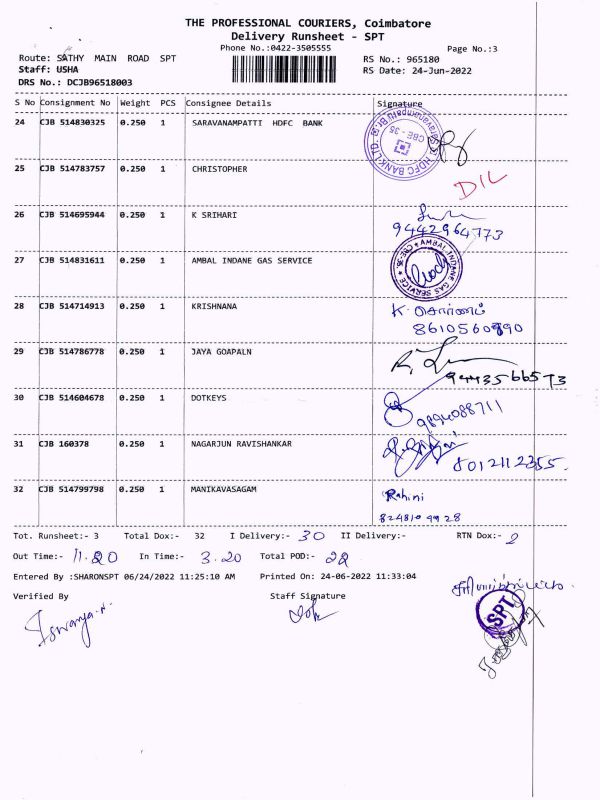 THE PROFESSIONAL COURIERS, Coimbatore
Delivery Runsheet - SPT
Phone No.:0422-3505555
Page No.:3
Route: SATHY MAIN ROAD SPT
RS No.: 965180
Staff: USHA
RS Date: 24-Jun-2022
DRS No.: DCJB96518003
S No Consignment No Weight PCS Consignee Details Signature
24 CJB 514830325 0.250 1 SARAVANAMPATTI HDFC BANK
HDFC BANK LTD. CBE - 35
25 CJB 514783757 0.250 1 CHRISTOPHER
DIL
26 CJB 514695944 0.250 1 K SRIHARI
9442964773
27 CJB 514831611 0.250 1 AMBAL INDANE GAS SERVICE
AMBAL INDANE GAS SERVICE CBE-35
28 CJB 514714913 0.250 1 KRISHNANA
K.
29 CJB 514786778 0.250 1 JAYA GOAPALN
9443566573
30 CJB 514604678 0.250 1 DOTKEYS
9894088711
31 CJB 160378 0.250 1 NAGARJUN RAVISHANKAR
8012112355.
32 CJB 514799798 0.250 1 MANIKAVASAGAM Rahini
8248104928
Tot. Runsheet:- 3 Total Dox:- 32 I Delivery:- 30 II Delivery:- RTN Dox:- 2
Out Time:- 11.20 In Time:- 3.20 Total POD:- 22
Entered By :SHARONSPT 06/24/2022 11:25:10 AM Printed On: 24-06-2022 11:33:04
Verified By Staff Signature
SPT
Iswarya.